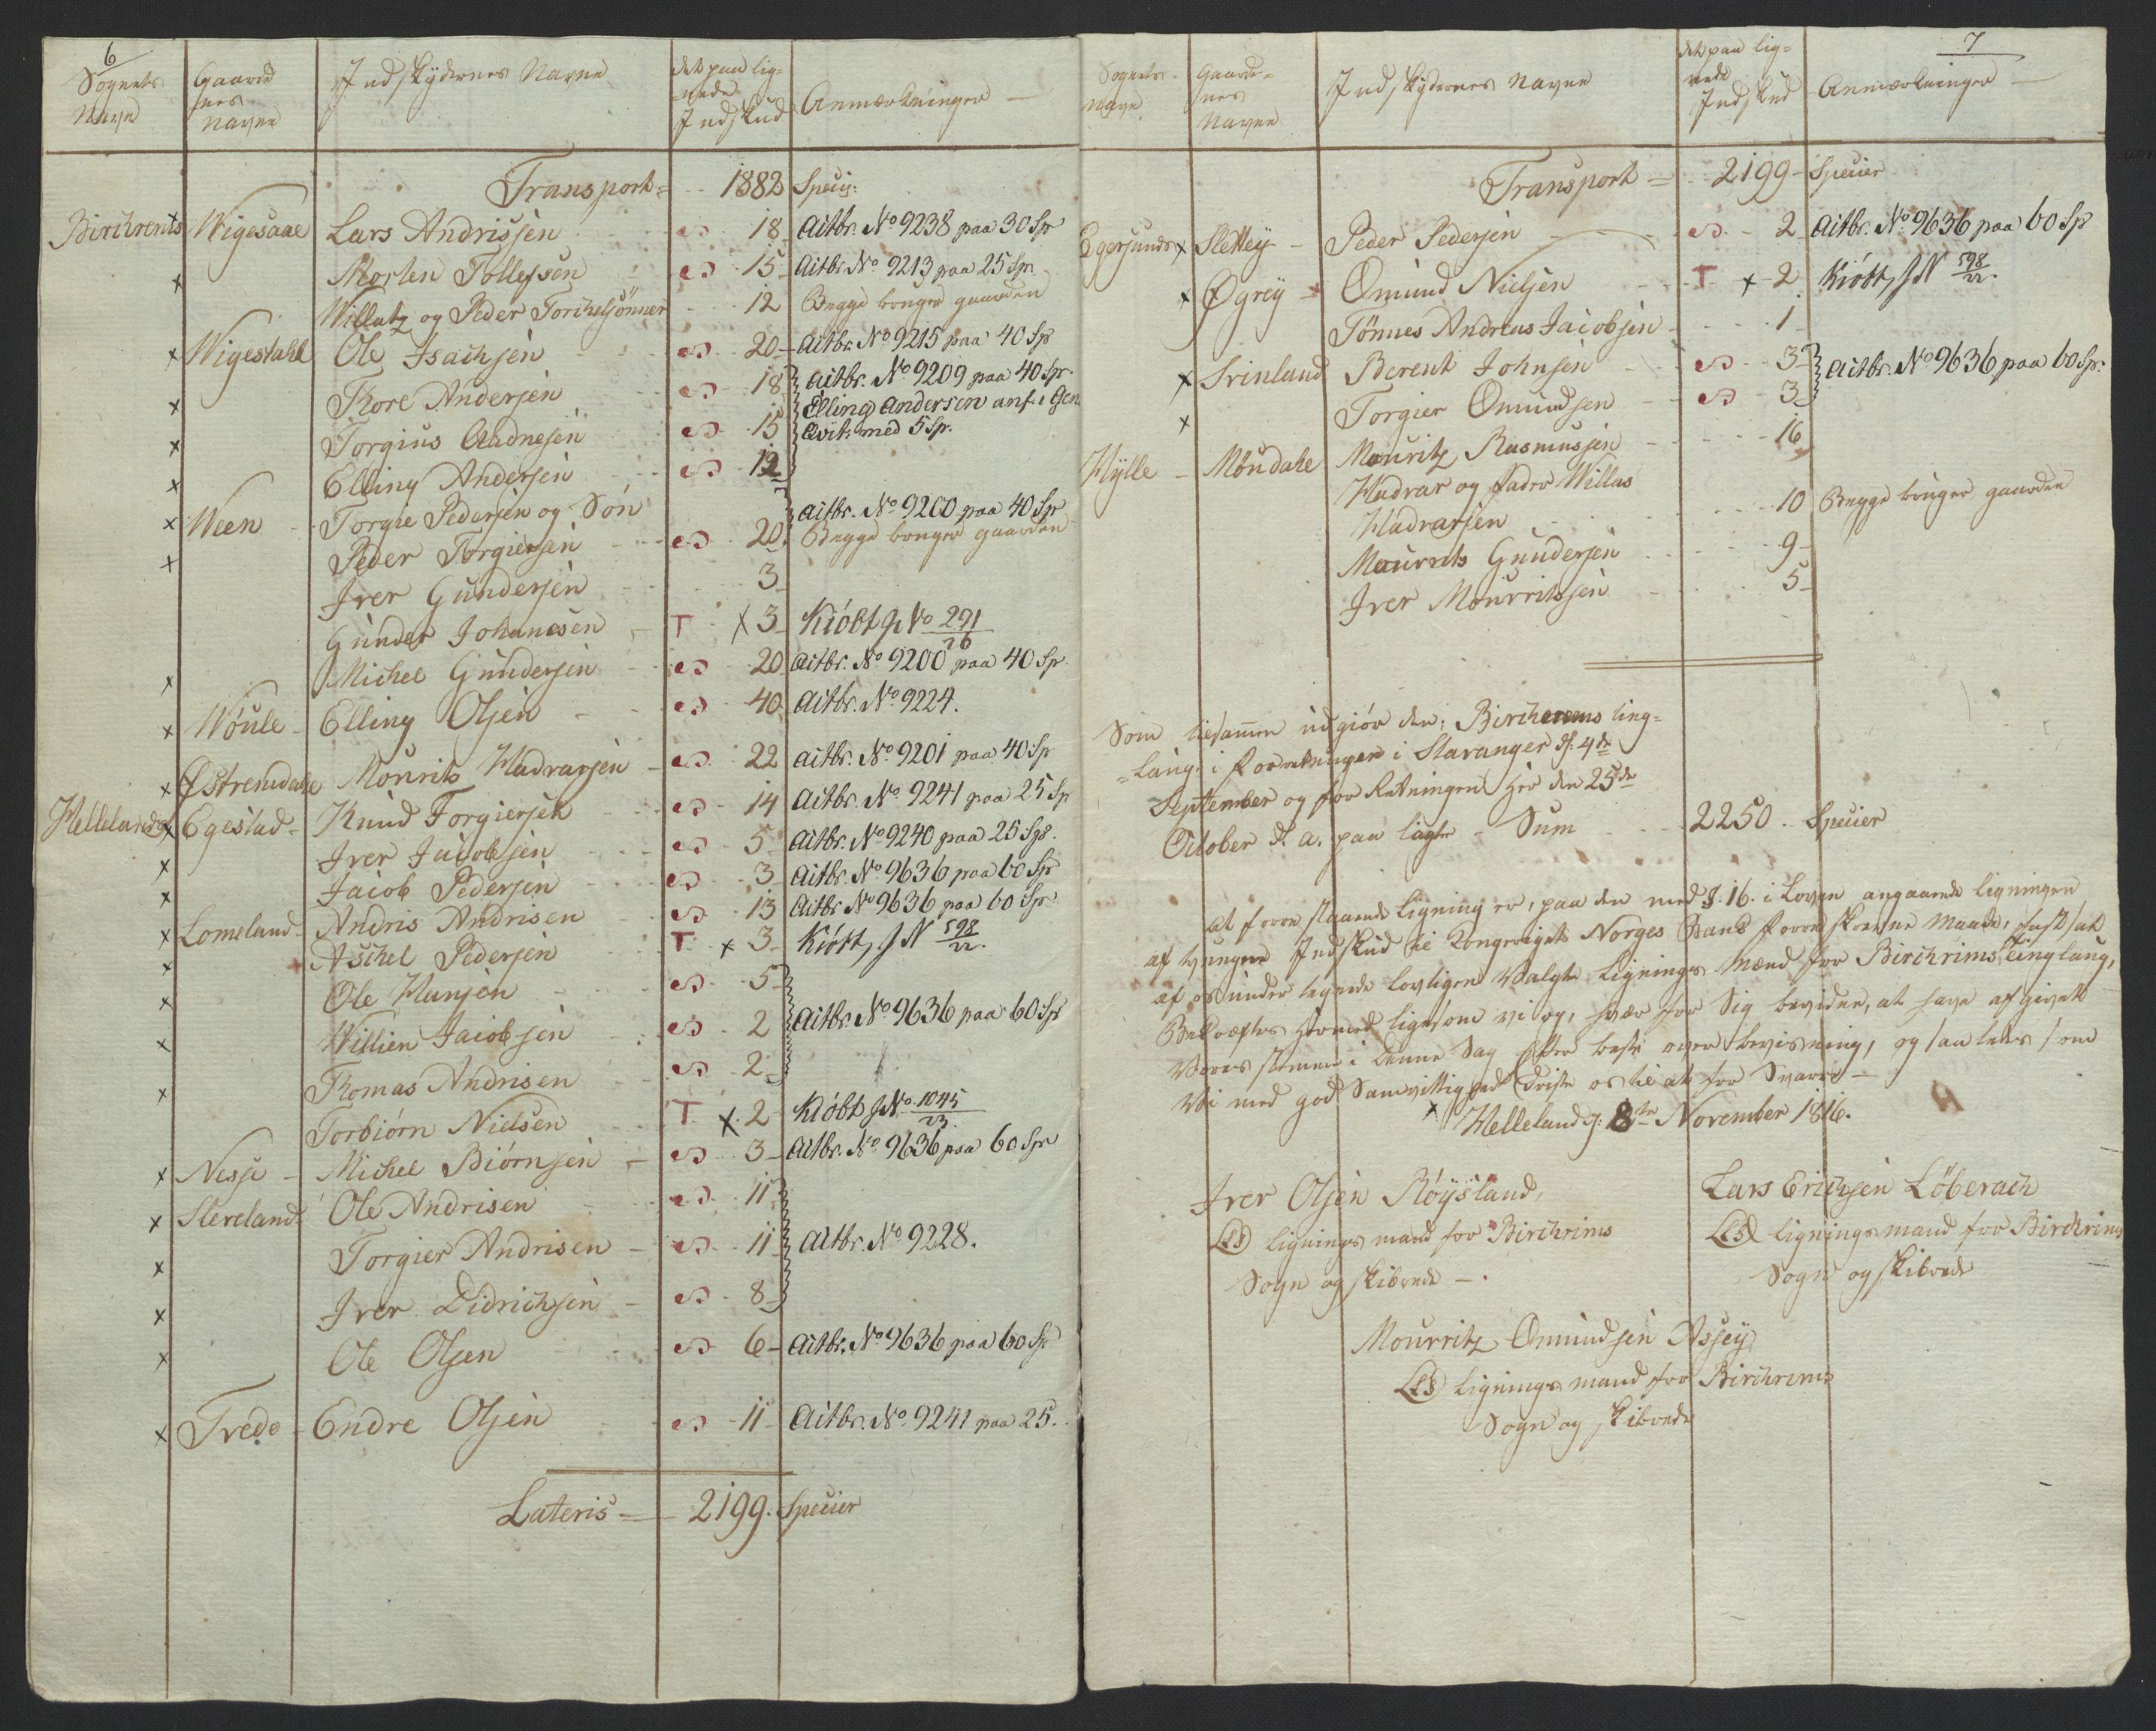 6
Sognets Navn
Gaardenes Navne
Indskydernes Navne
det paa lignede Indskud
Anmærkninger
Transport 1882 Specis:
Birchrems Wigesaae Lars Andrissen 18 Actbr. No 9238 paa 30 Sp
Morten Tollefsen 15 Actbr. No 9213 paa 25 Sp
Willatz og Peder Torchelsönner 12 Begge bruger gaarden
Wigestahl Ole Isachsen 20 Actbr. No 9215 paa 40 Sp
Tore Andersen 18 Actbr. No 9209 paa 40 Sp.
Torgius Aadnesen 15 Elling Andersen anf. i Gen
Qvit: med 5 Sp.
Elling Andersen 12
Ween Torgie Pedersen og Sön
Peder Torgiersen 20 Actbr. No 9200 paa 40 Sp
Begge bruger gaarden
Iver Gundersen 3
Gunder Johanesen T x 3 Kiöbt J No 291/26
Michel Gundersen 20 Actbr. No 9200 paa 40 Sp.
Woule Elling Olsen 40 Actbr. No 9224.
Østremdahl Mourits Hadvarsen 22 Actbr. No 9201 paa 40 Sp
Hellelands Egestad Knud Torgiersen 14 Actbr. No 9241 paa 25 Sp
Iver Jacobsen 5 Actbr. No 9240 paa 25 Sps.
Jacob Pedersen 3 Actbr. No 9636 paa 60 Sp
Lomeland Andris Andrisen 13 Actbr No 9636 paa 60 Sp
Aschel Pedersen T x 3 Kiött, J N 598/22.
Ole Hansen 5
Willien Jacobsen 2 Actbr. No 9636 paa 60 Sp
Tomas Andrisen 2
Torbiörn Nielsen T x 2 Kiöbt J No 1045/23.
Nesse Michel Biörnsen 3 Actbr. No 9636 paa 60 Sp
Slereland Ole Andrisen 11
Torgier Andrisen 11 Actbr. No 9228.
Iver Didrichsen 8
Ole Olsen 6 Actbr. No 9636 paa 60 Sp
Trede Endre Olsen 11 Actbr. No 9241 paa 25.
Lateris 2199. Specier
7
Sognets Navn
Gaardenes Navne
Indskydernes Navne
det paa lignede Indskud
Anmærkninger
Transport 2199 Specier
Egersunds Slettey Peder Pedersen 2 Actbr. No 9636 paa 60 Sp
Øgrey Omund Nielsen T x 2 Kiött, J N 598/22.
Tönnes Andreas Jacobsen 1
Svinland Berent Johnsen 3 Actbr. No 9636 paa 60 Sp.
Torgier Omundsen 3
Hylle Möndahl Mouritz Rasmussen 16
Hadvar og fader Willas
Hadvarsen 10 Begge bruger gaarden
Mourits Gundersen 9
Iver Mourritssen 5
Som tilsammen udgiör den, Birchrems ting-
laug i Forretningen i Stavanger d. 4de
September og for Retningen her den 25de
October d. a. paa lagte Sum 2250 Specier
at forre staaende Ligning er, paa den ved §. 16. i Loven angaaende Ligningen
af tvungne Indskud til Kongeriget Norges Bank forre skrevne Maade, fastsat
af os under tegnede lovligen Valgte Lignings Mænd for Birchrims Tinglaug,
Bekræftes hermed ligesom vi og, hver for Sig bevidne, at have afgivet
Vores stemme i denne Sag efter beste over bevisning, og saaledes som
Vi med god Samvittighed trøste os til at for Svarre
Helleland d: 8de November 1816.
Iver Olsen Röysland,
(LS) Lignings mand for Birchrims
Sogn og skibrede
Lars Erichsen Löberach
(LS) Lignings mand for Birchrims
Sogn og skibrede
Mourritz Omundsen Assey
(LS) Lignings mand for Birchrems
Sogn og skibrede